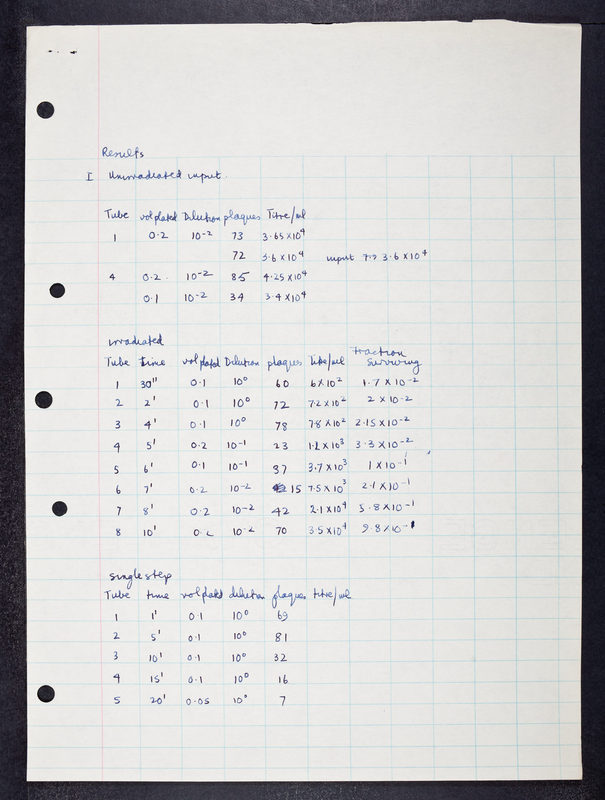 Results
I Unirradiated input.
Tube vol plated Dilution plaques Titre/ml
1 0.2 10⁻² 73 3.65 x 10⁴
72 3.6 x 10⁴ input 3.6 x 10⁴
4 0.2. 10⁻² 85 4.25 x 10⁴
0.1 10⁻² 34 3.4 x 10⁴
irradiated
Tube time vol plated Dilution plaques Titre/ml fraction surviving
1 30" 0.1 10⁰ 60 6 x 10² 1.7 x 10⁻²
2 2' 0.1 10⁰ 72 7.2 x 10² 2 x 10⁻²
3 4' 0.1 10⁰ 78 7.8 x 10² 2.15 x 10⁻²
4 5' 0.2 10⁻¹ 23 1.2 x 10³ 3.3 x 10⁻²
5 6' 0.1 10⁻¹ 37 3.7 x 10³ 1 x 10⁻¹
6 7' 0.2 10⁻² 15 7.5 x 10³ 2.1 x 10⁻¹
7 8' 0.2 10⁻² 42 2.1 x 10⁴ 5.8 x 10⁻¹
8 10' 0.2 10⁻² 70 3.5 x 10⁴ 9.8 x 10⁻¹
single step
Tube time vol plated dilution plaques titre/ml
1 1' 0.1 10⁰ 69
2 5' 0.1 10⁰ 81
3 10' 0.1 10⁰ 32
4 15' 0.1 10⁰ 16
5 20' 0.05 10⁰ 7